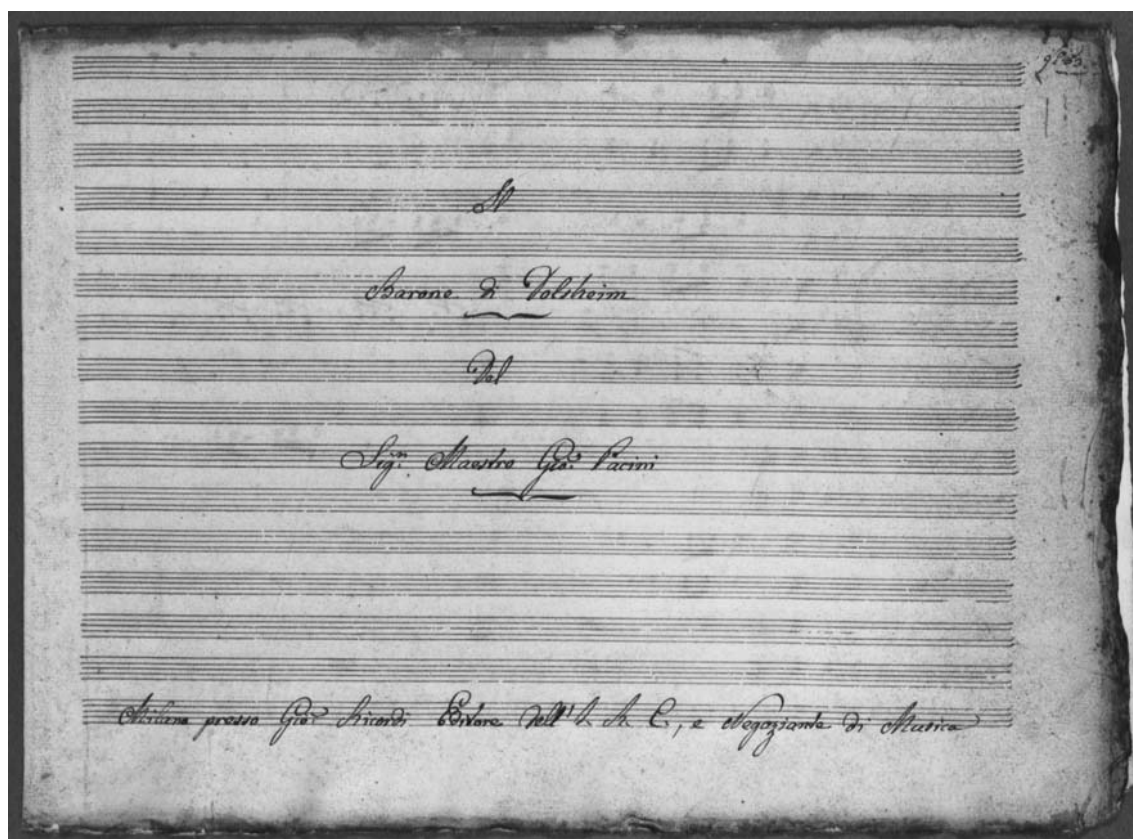 Il
Barone di Dolsheim
Del
Sigr. Maestro Gioe. Pacini
Milano presso Gioe. Ricordi Editore dell'I. R. C., e Negoziante di Musica